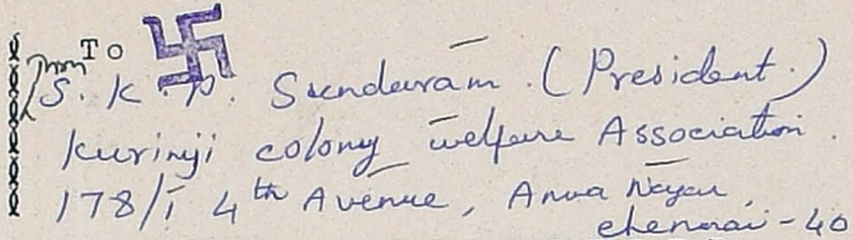 From To
S. K. P. Sundaram. (President.)
Kurinji colony welfare Association.
178/1 4th Avenue, Anna Nagar,
chennai - 40